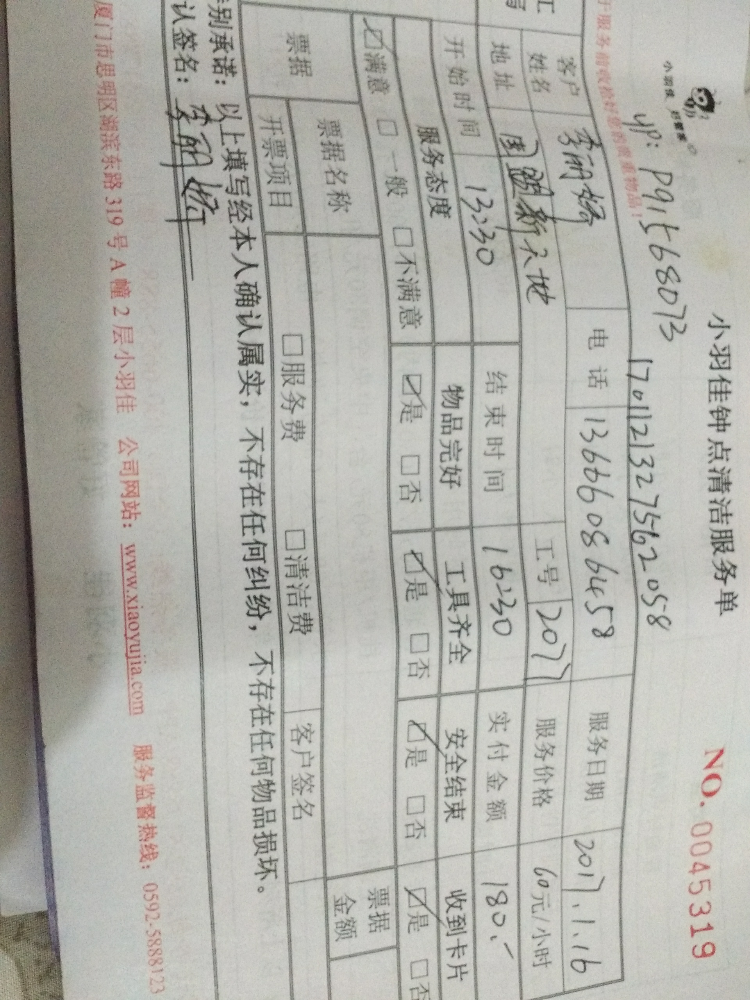 小羽佳钟点清洁服务单
NO. 0045319
小羽佳 好管家
yp: P91568073
1701121327562058
于服务前收检好您的贵重物品!
客户姓名 李丽娇 电话 13666086458 服务日期 2017.1.16
地址 国联新天地 工号 2077 服务价格 60元/小时
开始时间 13:30 结束时间 16:30 实付金额 180.-
服务态度 物品完好 工具齐全 安全结束 收到卡片
☑满意 □一般 □不满意 ☑是 □否 ☑是 □否 ☑是 □否 ☑是 □否
票据 票据名称 票据金额
开票项目 □服务费 □清洁费 客户签名
别承诺:以上填写经本人确认属实,不存在任何纠纷,不存在任何物品损坏。
认签名:李丽娇
厦门市思明区湖滨东路 319 号 A 幢 2 层小羽佳 公司网站:www.xiaoyujia.com 服务监督热线:0592-5888123